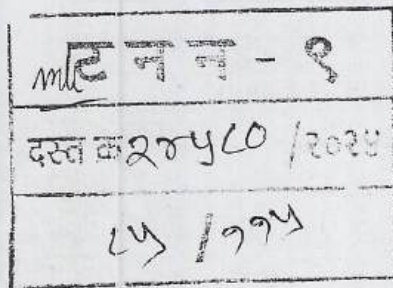 ट न न - ९
दस्त क्र २४५८० / २०२४
८५ / ११५